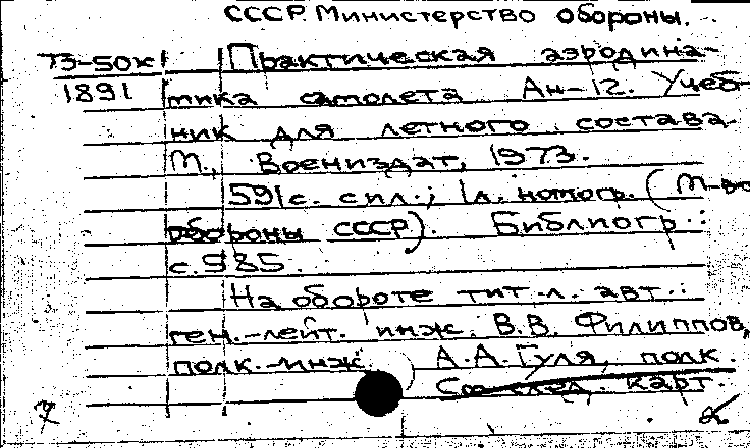 СССР. Министерство обороны.
Т3-50ж Практическая аэродина-
1891 мика самолета Ан-12. Учеб-
ник для летного состава.
М., Воениздат, 1973.
591с. с ил.; 1л. номогр. (М-во
обороны СССР). Библиогр.:
с. 585.
На обороте тит.л. авт.:
ген.-лейт. инж. В.В. Филиппов,
полк.-инж. А.А. Гуля, полк.
карт.